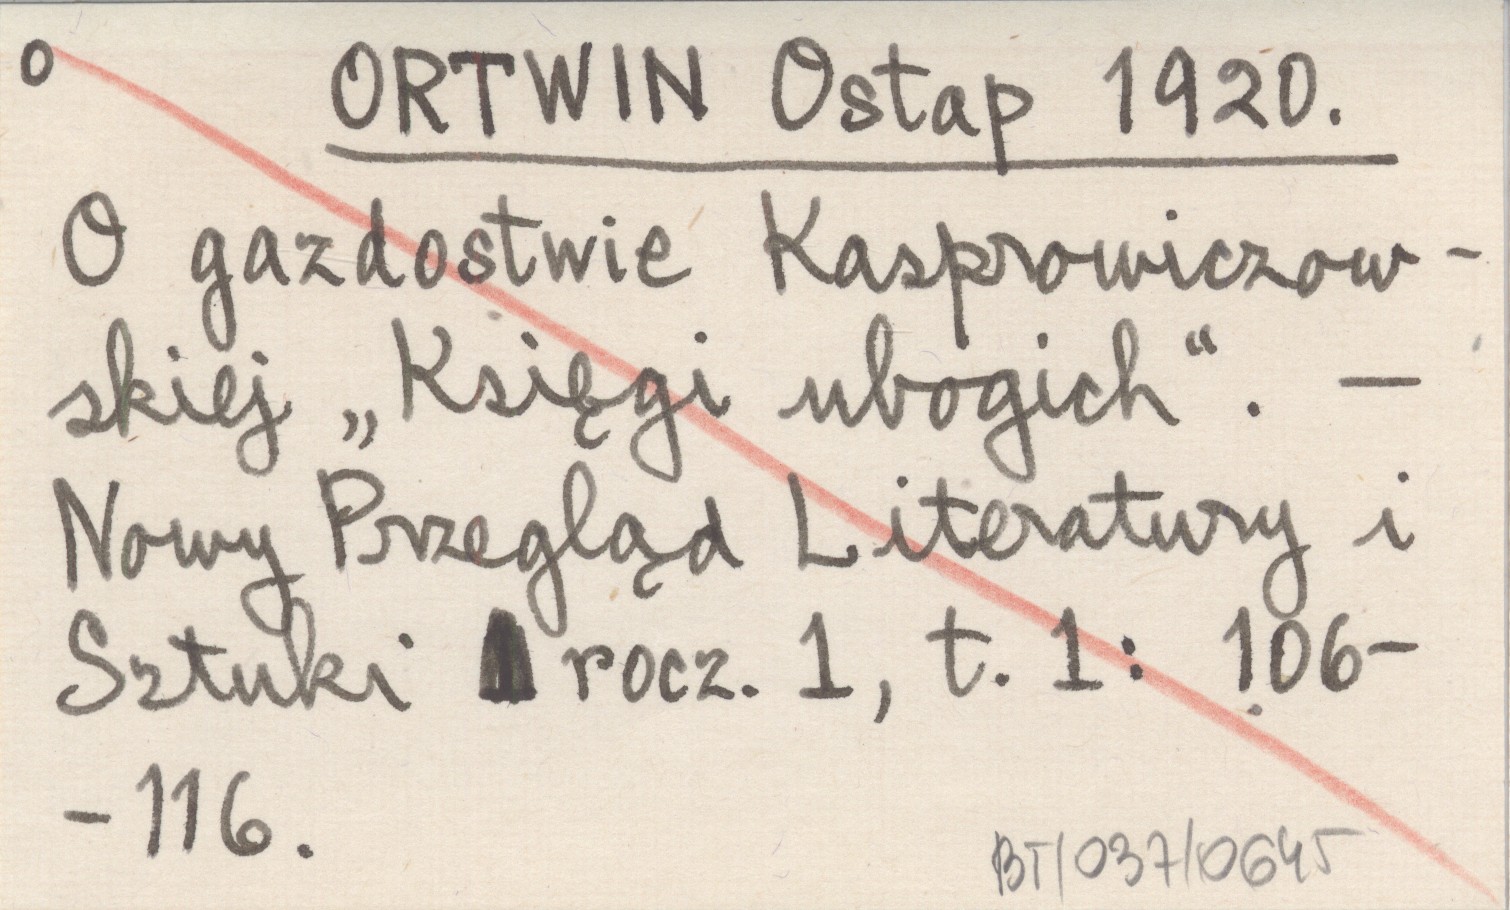 o ORTWIN Ostap 1920.
O gazdostwie Kasprowiczow-
skiej „Księgi ubogich“. —
Nowy Przegląd Literatury i
Sztuki rocz. 1, t. 1: 106-
-116.
BT/037/0645